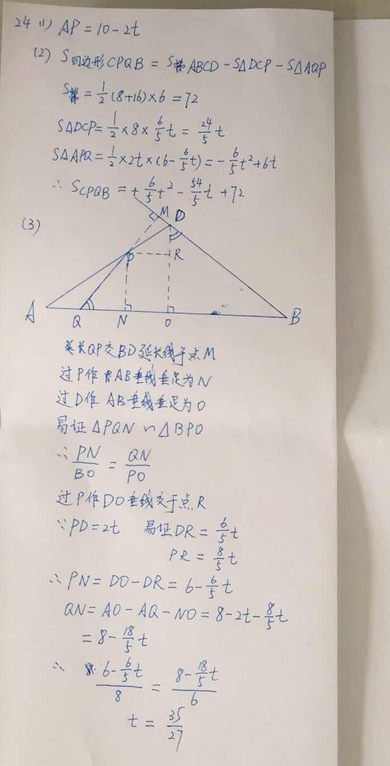 24 (1) AP=10-2t
(2) S四边形CPQB = S梯ABCD - S△DCP - S△AQP
S梯=½(8+16)×6=72
S△DCP=½×8×6/5t=24/5t
S△APQ=½×2t×(6-6/5t)=-6/5t²+6t
∴ SCPQB=+6/5t²-54/5t+72
(3)
M
D
P
R
A
Q
N
O
B
延长QP交BD延长线于点M
过P作AB垂线垂足为N
过D作AB垂线垂足为O
易证△PQN∽△BDO
∴ PN/BO=QN/DO
过P作DO垂线交于点R
∵PD=2t 易证DR=6/5t
PR=8/5t
∴PN=DO-DR=6-6/5t
QN=AO-AQ-NO=8-2t-8/5t
=8-18/5t
∴ (6-6/5t)/8=(8-18/5t)/6
t=35/27